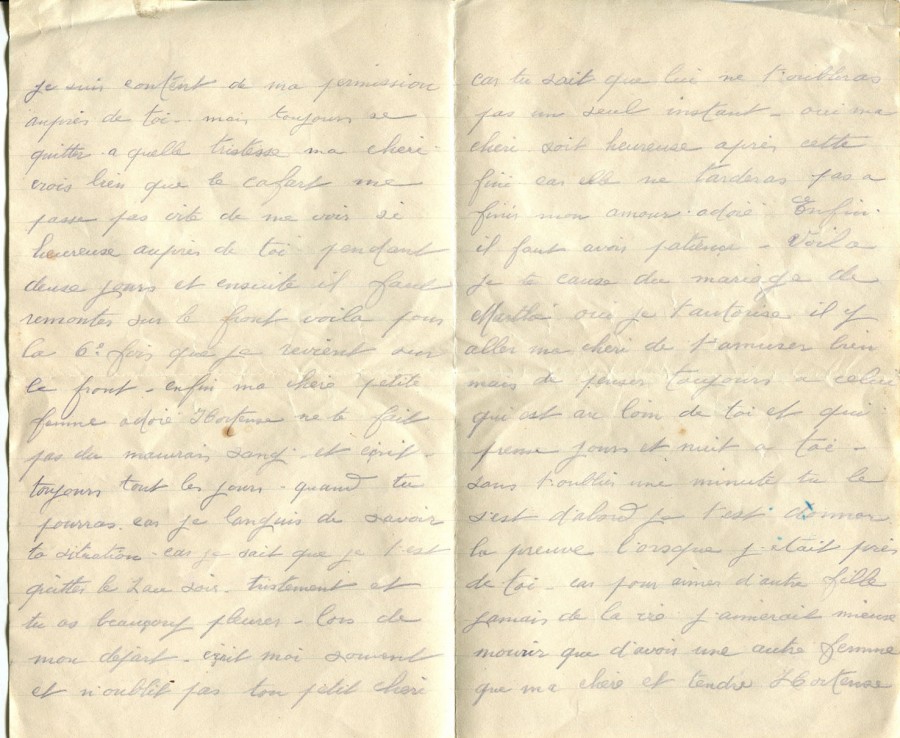 je suis content de ma permission
auprès de toi - mais toujours se
quitter - a quelle tristesse ma cheri -
crois bien que le cafart me
passe pas vite de me voir si
heureuse auprès de toi pendant
deuse jours et ensuite il faut
remonter sur le front voila pour
la 6e fois que je revient sur
le front - enfin ma chère petite
femme adoré Hortense ne te fait
pas du mauvais sang - et écrit -
toujours tout les jours - quand tu
pourras. car je languis de savoir
ta sitration - car je sait que je t'est
quitter le soir - tristement et
tu as beaucoup pleurer - lors de
mon depart - écrit moi souvent
et n'oublit pas ton petit cheri
car tu sait que lui ne t'oubliras
pas un seul instant - oui ma
cheri soit heureuse après cette
fini car elle ne tarderas pas a
finir mon amour adoré Enfin
il faut avoir patience - Voila
je te cause du mariage de
Martha oui je t'autorise il y
aller ma cheri de t'amuser bien
mais de penser toujours a celui
qui est au loin de toi et qui
pense jours et nuit a toi -
sans t'oublier une minute tu le
s'est d'abord je t'est donner
la preuve l'orsque j'était près
de toi - car pour aimer d'autre fille
jamais de la vie j'aimerait mieuse
mourir que d'avoir une autre femme
que ma chere et tendre Hortense